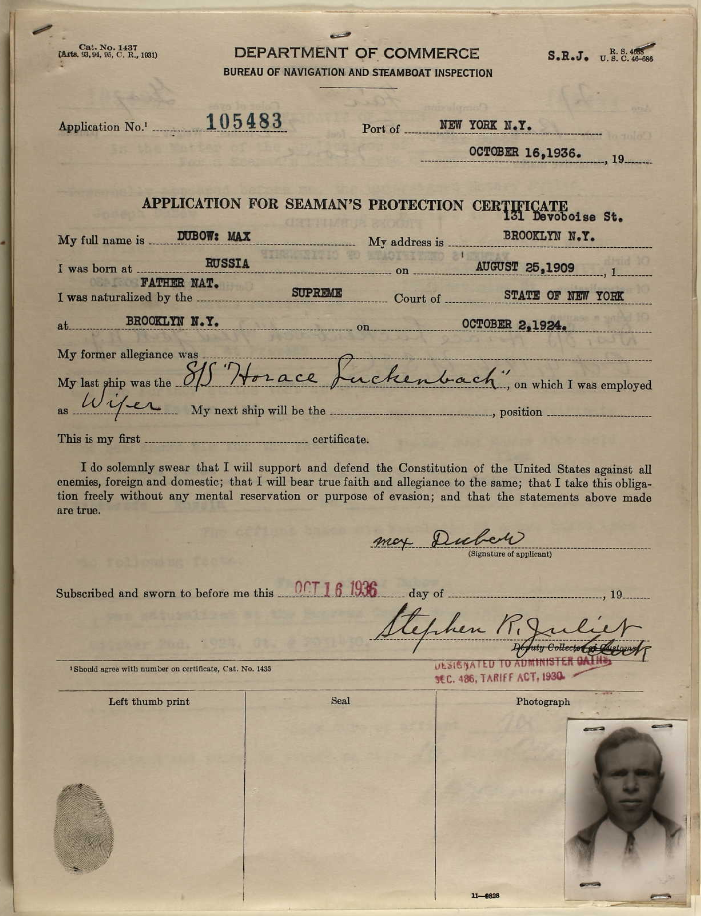 Cat. No. 1437
(Arts. 93, 94, 95, C. R., 1931)
DEPARTMENT OF COMMERCE
BUREAU OF NAVIGATION AND STEAMBOAT INSPECTION
S.R.J.
R. S. 4588
U. S. C. 46-686
Application No.¹ 105483
Port of NEW YORK N.Y.
OCTOBER 16,1936. , 19
APPLICATION FOR SEAMAN'S PROTECTION CERTIFICATE
131 Devoboise St.
My full name is DUBOW: MAX My address is BROOKLYN N.Y.
I was born at RUSSIA on AUGUST 25,1909 , 1
FATHER NAT.
I was naturalized by the SUPREME Court of STATE OF NEW YORK
at BROOKLYN N.Y. on OCTOBER 2,1924.
My former allegiance was
My last ship was the S/S "Horace Luckenbach", on which I was employed
as Wiper My next ship will be the , position
This is my first certificate.
I do solemnly swear that I will support and defend the Constitution of the United States against all
enemies, foreign and domestic; that I will bear true faith and allegiance to the same; that I take this obliga-
tion freely without any mental reservation or purpose of evasion; and that the statements above made
are true.
max Dubow
(Signature of applicant)
Subscribed and sworn to before me this OCT 16 1936 day of , 19
Stephen R. Juliet
Deputy Collector of Customs
Clerk
DESIGNATED TO ADMINISTER OATHS
SEC. 486, TARIFF ACT, 1930
¹ Should agree with number on certificate, Cat. No. 1435
Left thumb print
Seal
Photograph
11—6828